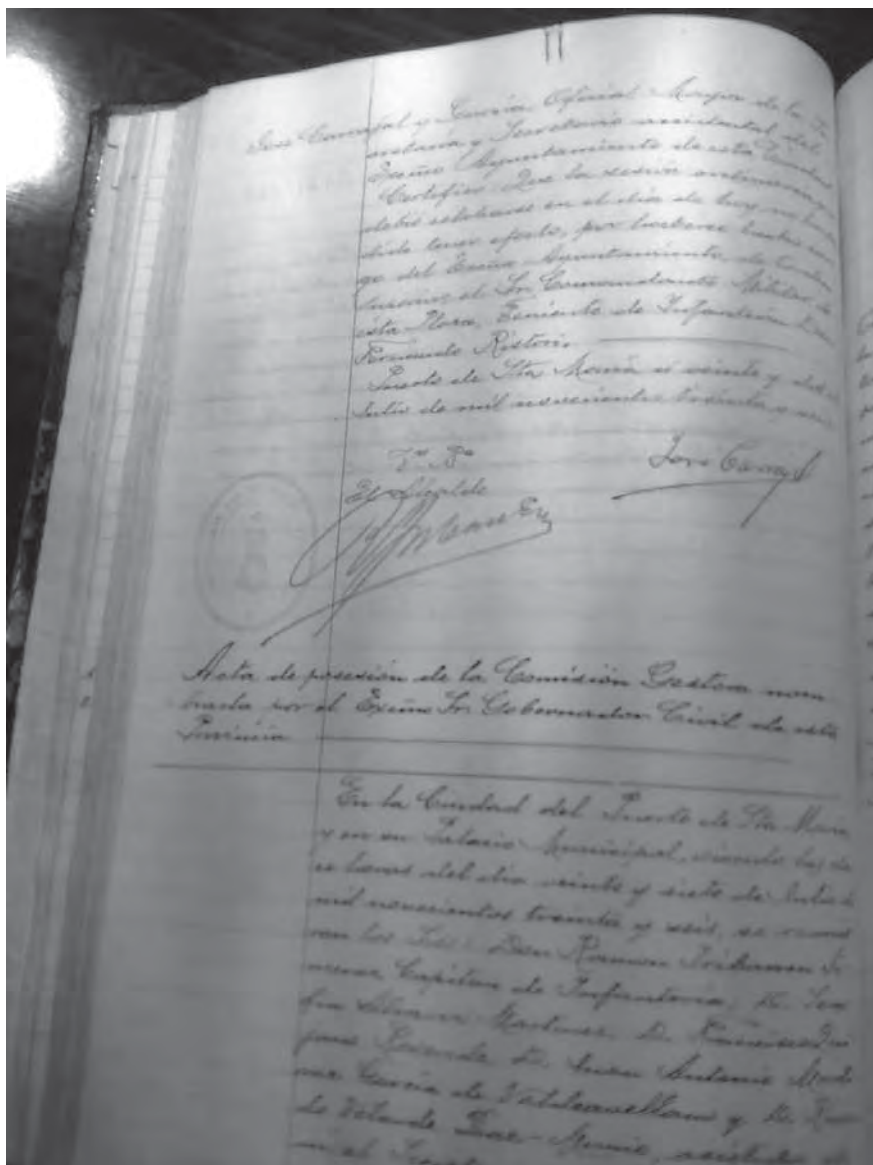 José Carvajal y García Oficial Mayor de la Se
cretaría y Secretario accidental del
Excmo Ayuntamiento de esta Ciudad
Certifico: Que la sesión ordinaria que
debió celebrarse en el día de hoy, no ha po
dido tener efecto, por haberse hecho car
go del Excmo Ayuntamiento, de
el Sr. Comandante Militar de
esta Plaza, Teniente de Infantería Don
Fernando Ristori.
Puerto de Sta María a veinte y dos de
Julio de mil novecientos treinta y seis
Vº Bº
El Alcalde
José Carvajal
Acta de posesión de la Comisión Gestora nom
brada por el Excmo Sr. Gobernador Civil de esta
Provincia
En la Ciudad del Puerto de Sta María
y en su Palacio Municipal, siendo las do
ce horas del día veinte y siete de Julio de
mil novecientos treinta y seis, se reunie
ron los Sres: Don Ramon
Capitan de Infantería, D.
Martinez, D. Francisco
D. Juan Antonio
García de Valdeavellano y D.
de